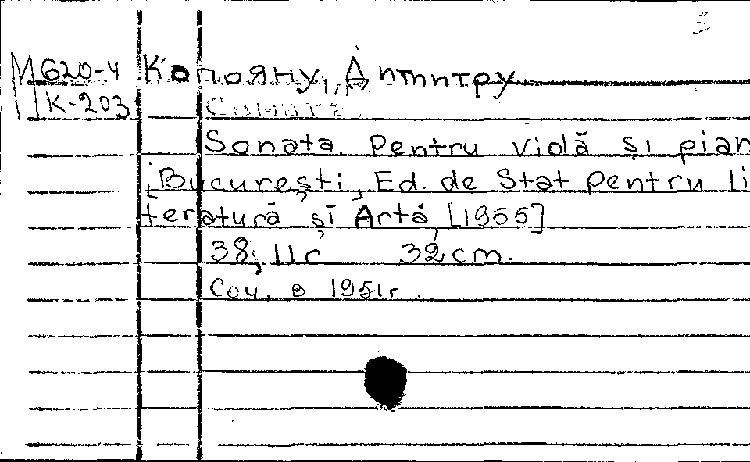 M620-4 Капояну, Димитру
К-203 Соната.
Sonata. Pentru violă și pian
București, Ed. de Stat pentru li
teratură și Artă, [1955]
38, 11 с 32 cm.
Соч. в 1951г.